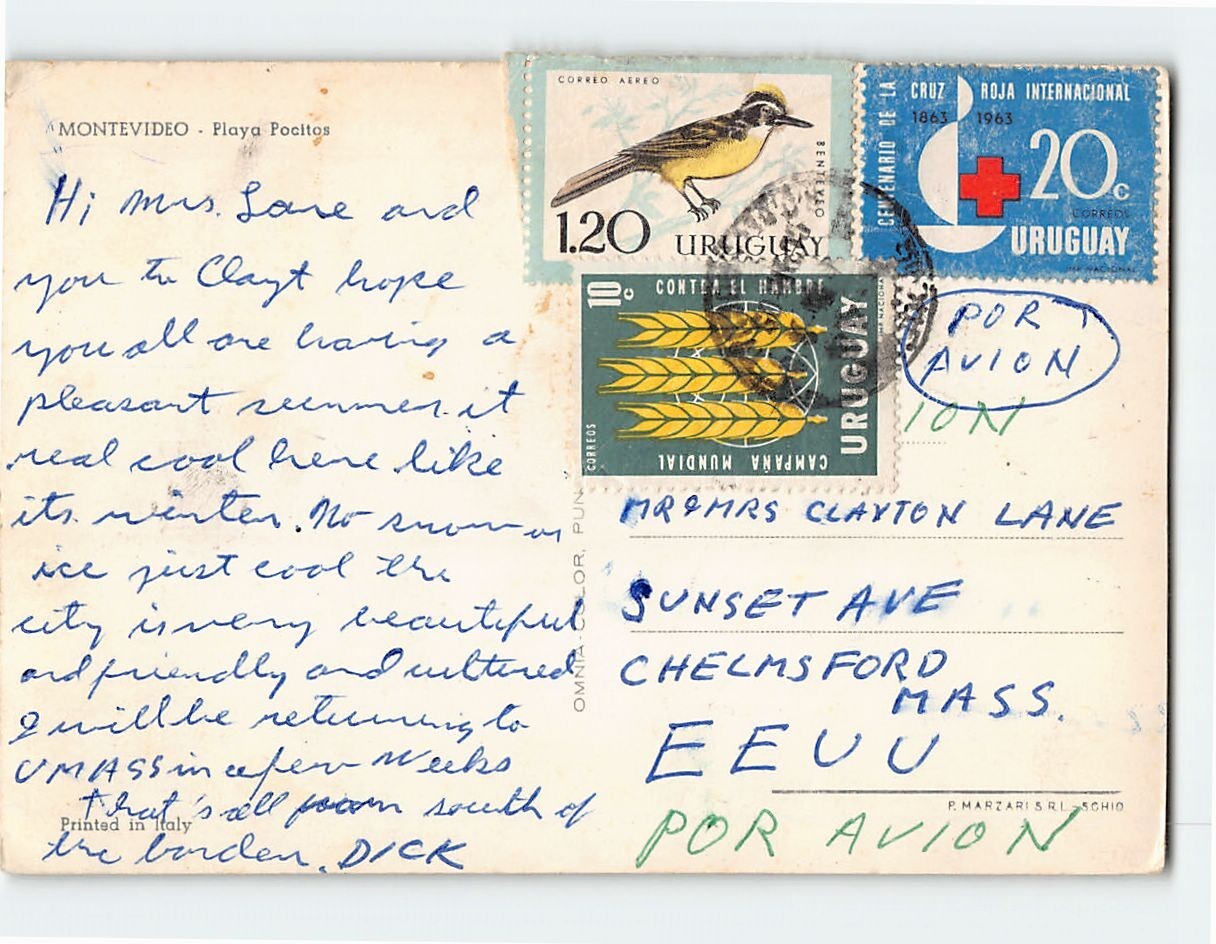 MONTEVIDEO - Playa Pocitos
Hi Mrs. Lane and
you to Clayt hope
you all are having a
pleasant summer. it
real cool here like
its winter. No snow or
ice just cool the
city is very beautiful
and friendly and cultured
I will be returning to
UMASS in a few Weeks
that's all from south of
Printed in Italy
the border. DICK
OMNIA-COLOR, PUN
CORREO AEREO
BENTEVEO
1.20 URUGUAY
CENTENARIO DE LA
CRUZ ROJA INTERNACIONAL
1863 1963
20c
CORREOS
URUGUAY
IMP NACIONAL
10c CONTRA EL HAMBRE
URUGUAY
CORREOS
CAMPAÑA MUNDIAL
POR
AVION
ION
MR & MRS CLAYTON LANE
SUNSET AVE
CHELMSFORD
MASS.
EEUU
P. MARZARI S.R.L. - SCHIO
POR AVION